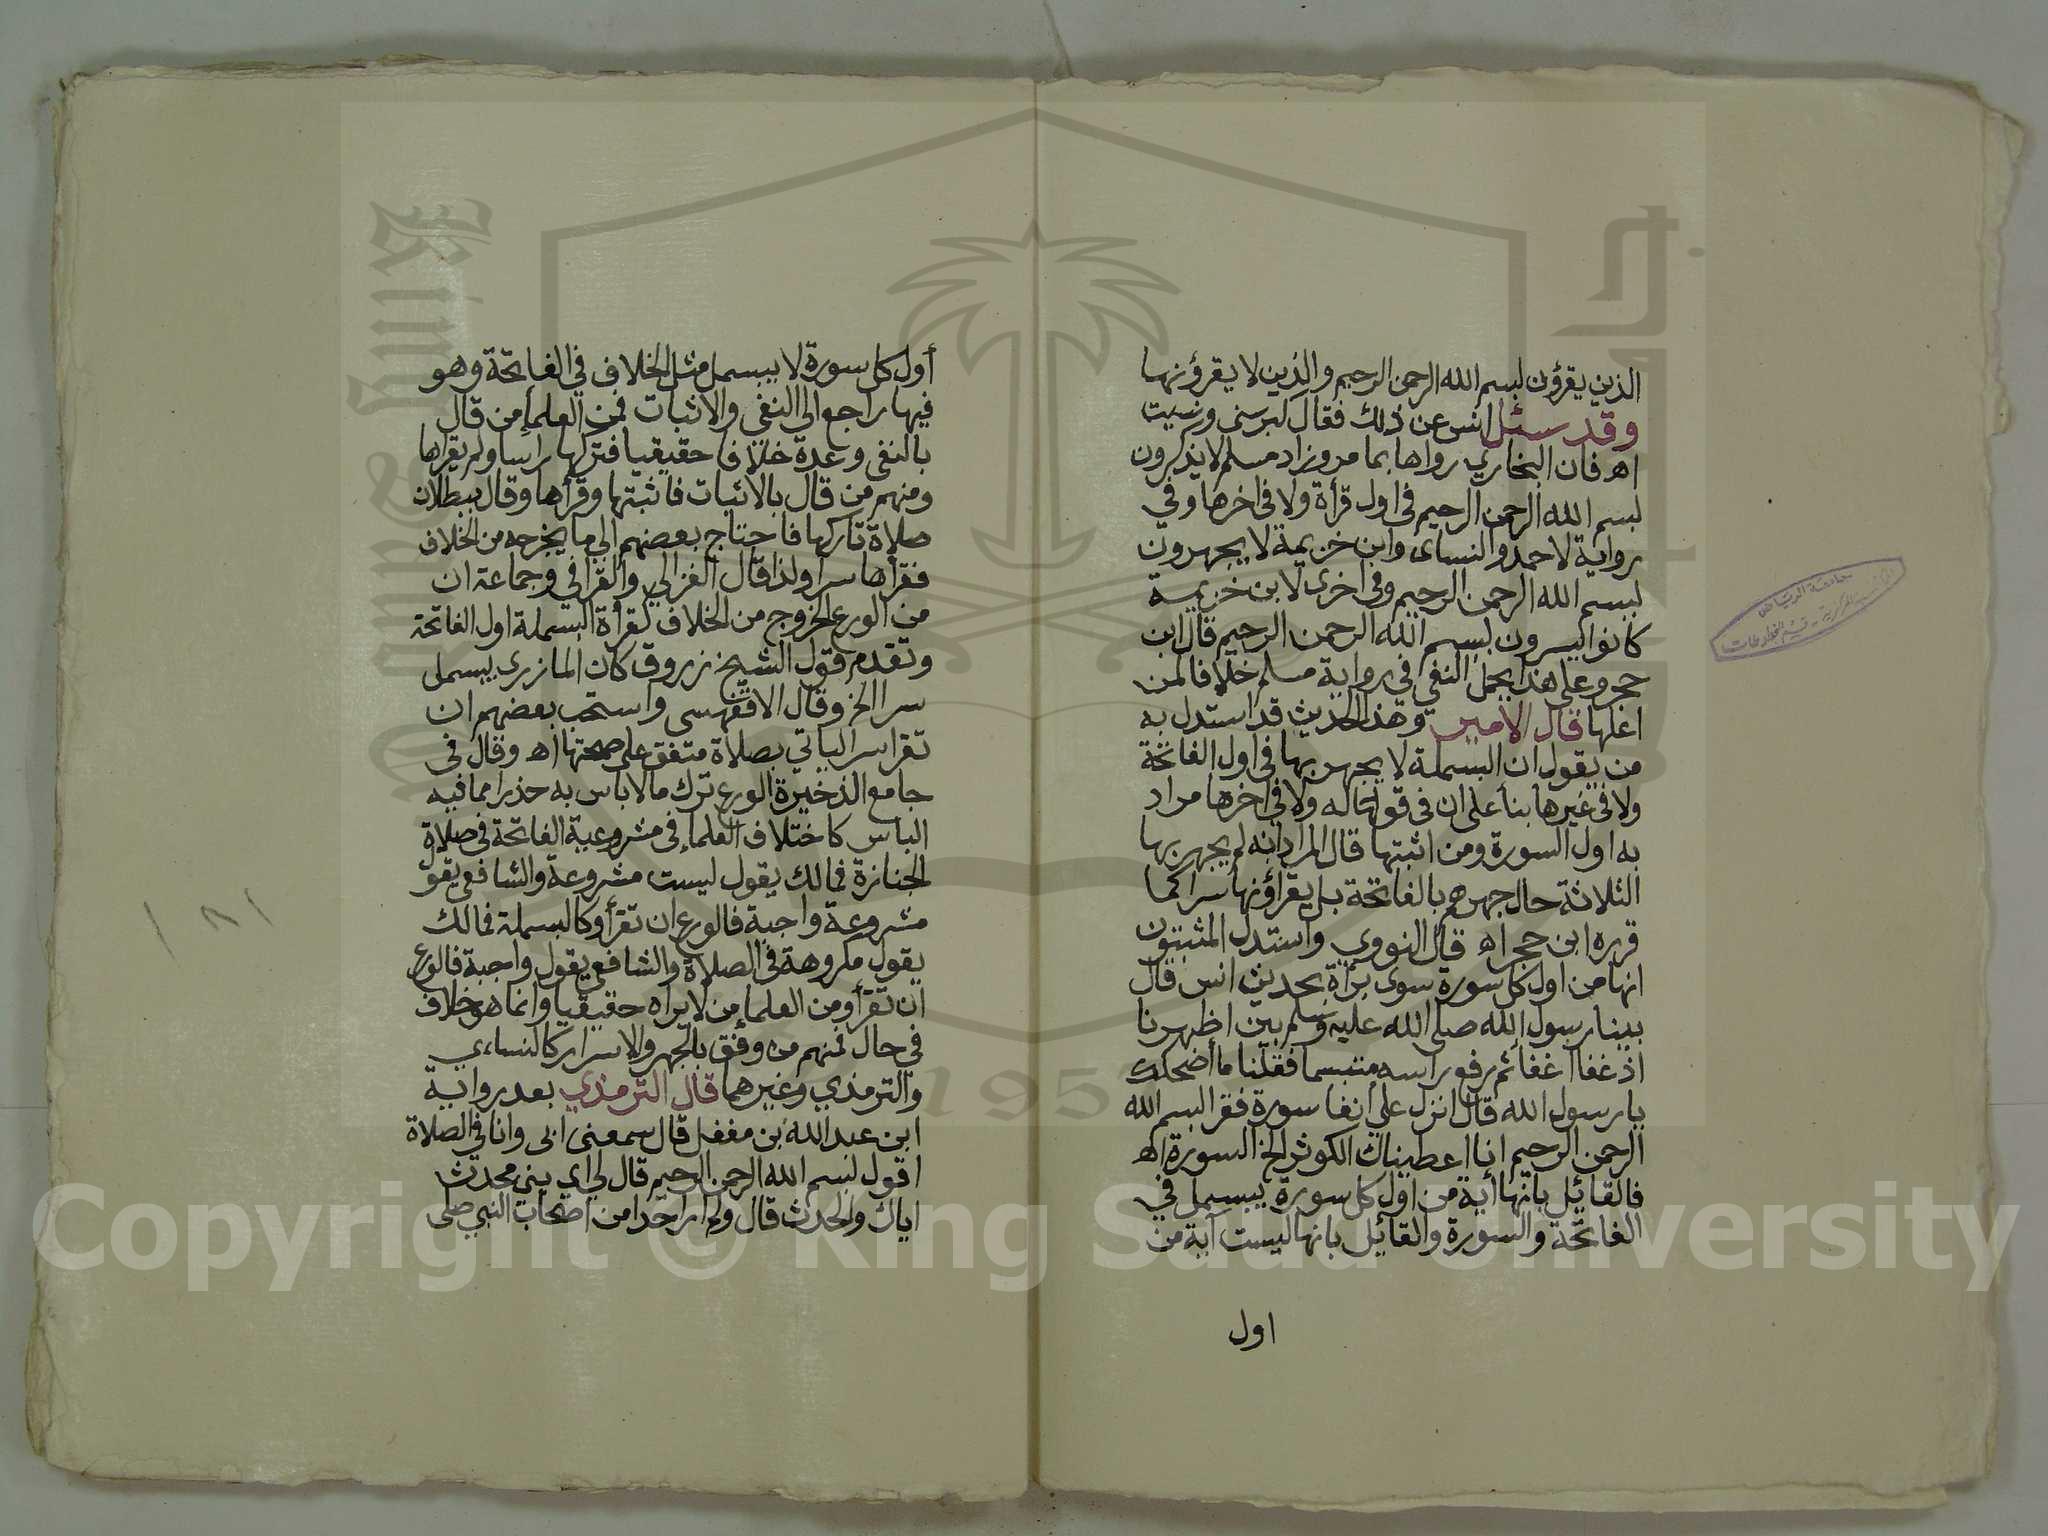 الذين يقرؤن لبسم الله الرحمن الرحيم والذين لا يقرؤنها
وقد سئل انس عن ذلك فقال كبر سني ونسيت
اه فان البخاري رواها بما مر وزاد مسلم لا يذكرون
لبسم الله الرحمن الرحيم في اول قرأة ولا في اخرها وفي
رواية لاحمد والنساى وابن خزيمة لا يجهرون
لبسم الله الرحمن الرحيم وفي اخرى لابن خزيمة
كانوا يسرون لبسم الله الرحمن الرحيم قال ابن
حجر وعلى هذا يحمل النفي في رواية مسلم خلافا لمن
اعلها قال الامير وهذا الحديث قد استدل به
من يقول ان البسملة لا يجهر بها في اول الفاتحة
ولا في غيرها بنأ على ان في قوله ولا في اخرها مراد
به اول السورة ومن اثبتها قال المراد انه لم يجهر بها
الثلاثة حال جهرهم بالفاتحة بل يقراؤنها سرا كما
قرره ابن حجر اه قال النووي واستدل المثبتون
انها من اول كل سورة سوى برأة بحديث انس قال
بينا رسول الله صلى الله عليه وسلم بين اظهرنا
اذ غفا اغفا ثم رفع راسه متبسما فقلنا ما أضحكك
يا رسول الله قال انزل علي أنفا سورة فقرا بسم الله
الرحمن الرحيم انا اعطيناك الكوثر الخ السورة اه
فالقايل بانها أية من اول كل سورة يبسمل في
الفاتحة والسورة والقايل بانها ليست آية من
اول
أول كل سورة لا يبسمل مثل الخلاف في الفاتحة وهو
فيها راجع الى النفى والاثبات فمن العلمأ من قال
بالنفى وعده خلافا حقيقيا فتركها راسا ولم يقراها
ومنهم من قال بالاثبات فاثبتها وقرأها وقال ببطلان
صلاة تاركها فاحتاج بعضهم الي ما يخرجه من الخلاف
فقرأها سرا ولذا قال الغزالي والقرافي وجماعة ان
من الورع الخروج من الخلاف لقرأة البسملة اول الفاتحة
وتقدم قول الشيخ زروق كان المازرى يبسمل
سرا الخ وقال الاقفهسى واستحب بعضهم ان
تقرا سرا لياتي بصلاة متفق على صحتها اه وقال في
جامع الذخيرة الورع ترك مالا باس به حذرا مما فيه
الباس كاختلاف العلمأ في مشروعية الفاتحة في صلاة
الجنازة فمالك يقول ليست مشروعة والشافعي يقول
مشروعة واجبة فالورع ان تقرأ وكالبسملة فمالك
يقول مكروهة في الصلاة والشافعي يقول واجبة فالورع
ان تقرأ ومن العلمأ من لا يراه حقيقيا وانما هو خلاف
في حال فمنهم من وفق بالجهر والاسرار كالنساءي
والترمذي وغيرهما قال الترمذي بعد رواية
ابن عبد الله بن مغفل قال سمعنى ابى وانا في الصلاة
اقول لبسم الله الرحمن الرحيم قال لي اي بني محدث
اياك والحدث قال ولم ار احدا من اصحاب النبي صلى
١٨١
جامعة الرياض
King Saud
1957
Copyright © King Saud University